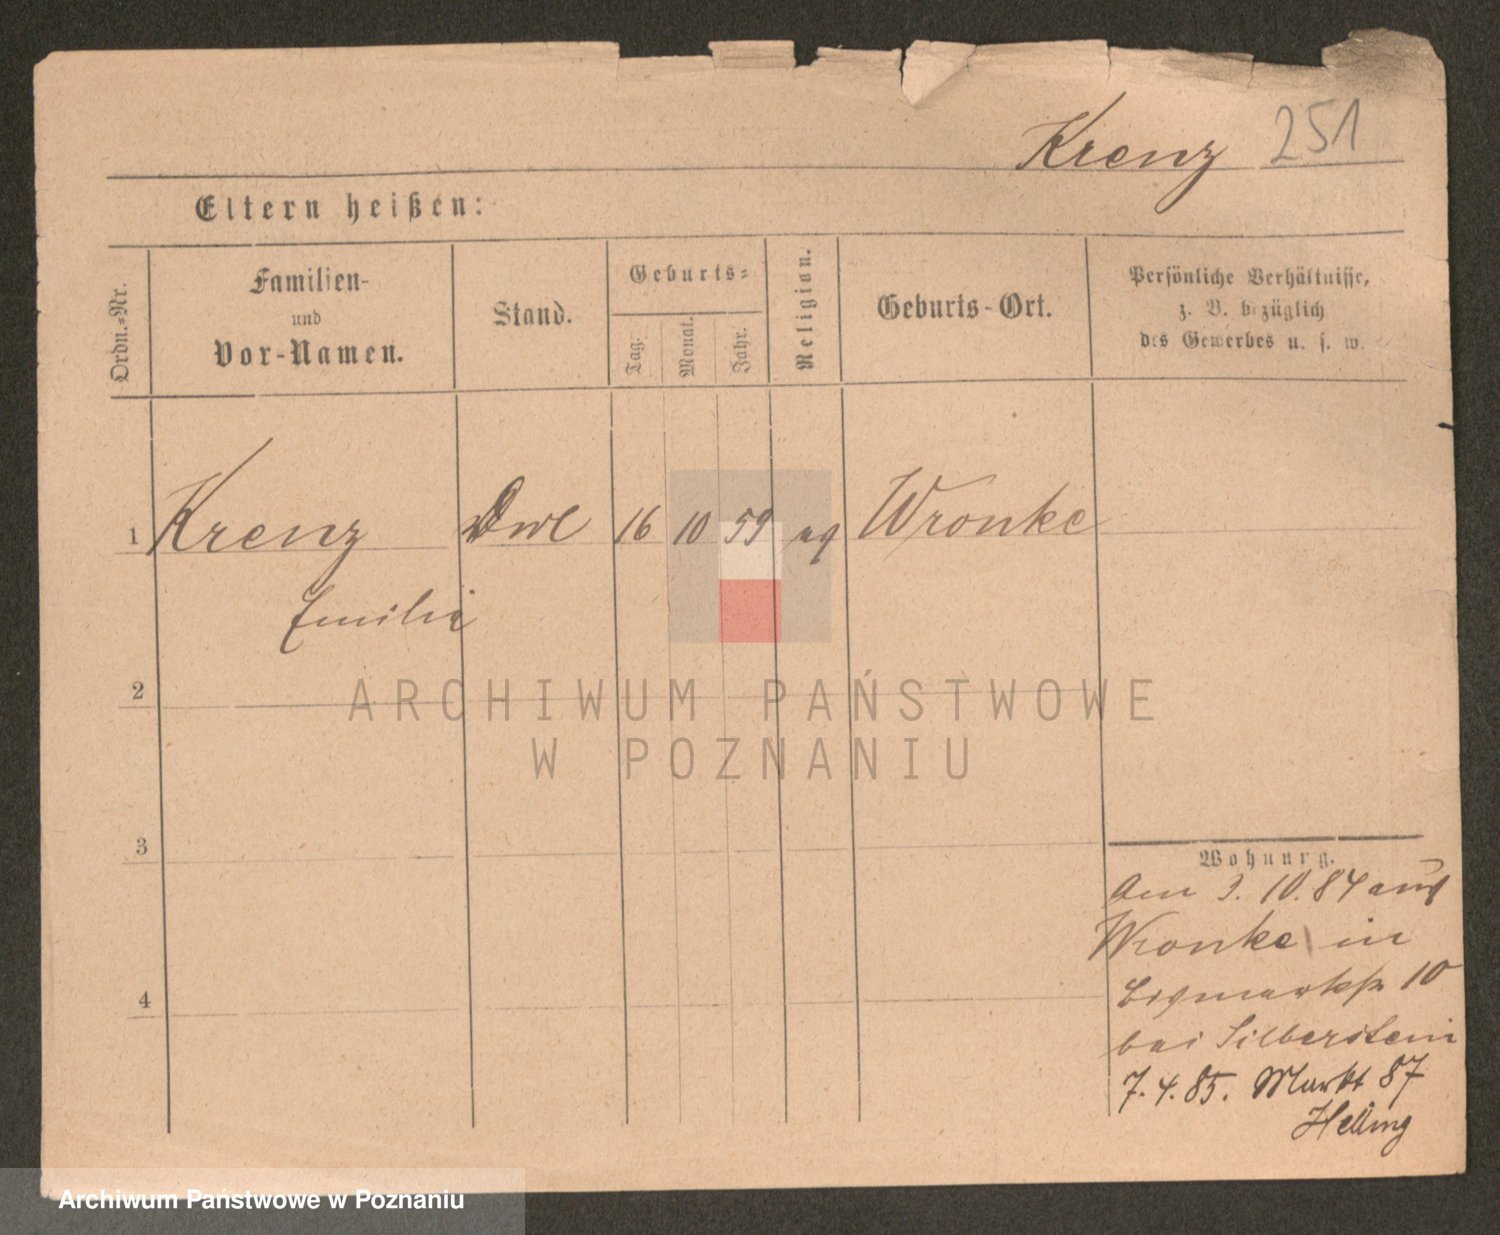 Krenz 251
Eltern heißen:
Ordn.-Nr.
Familien-
und
Vor-Namen.
Stand.
Geburts-
Tag.
Monat.
Jahr.
Religion.
Geburts-Ort.
Persönliche Verhältnisse,
z. B. bezüglich
des Gewerbes u. s. w.
1 Krenz 16 10 59 Wronke
Emilie
2
3
4
Wohnung.
Am 3. 10. 84 aus
Wronke in
Bismarckstr 10
bei Silberstein
7. 4. 85. Markt 87
Helling
ARCHIWUM PAŃSTWOWE
W POZNANIU
Archiwum Państwowe w Poznaniu